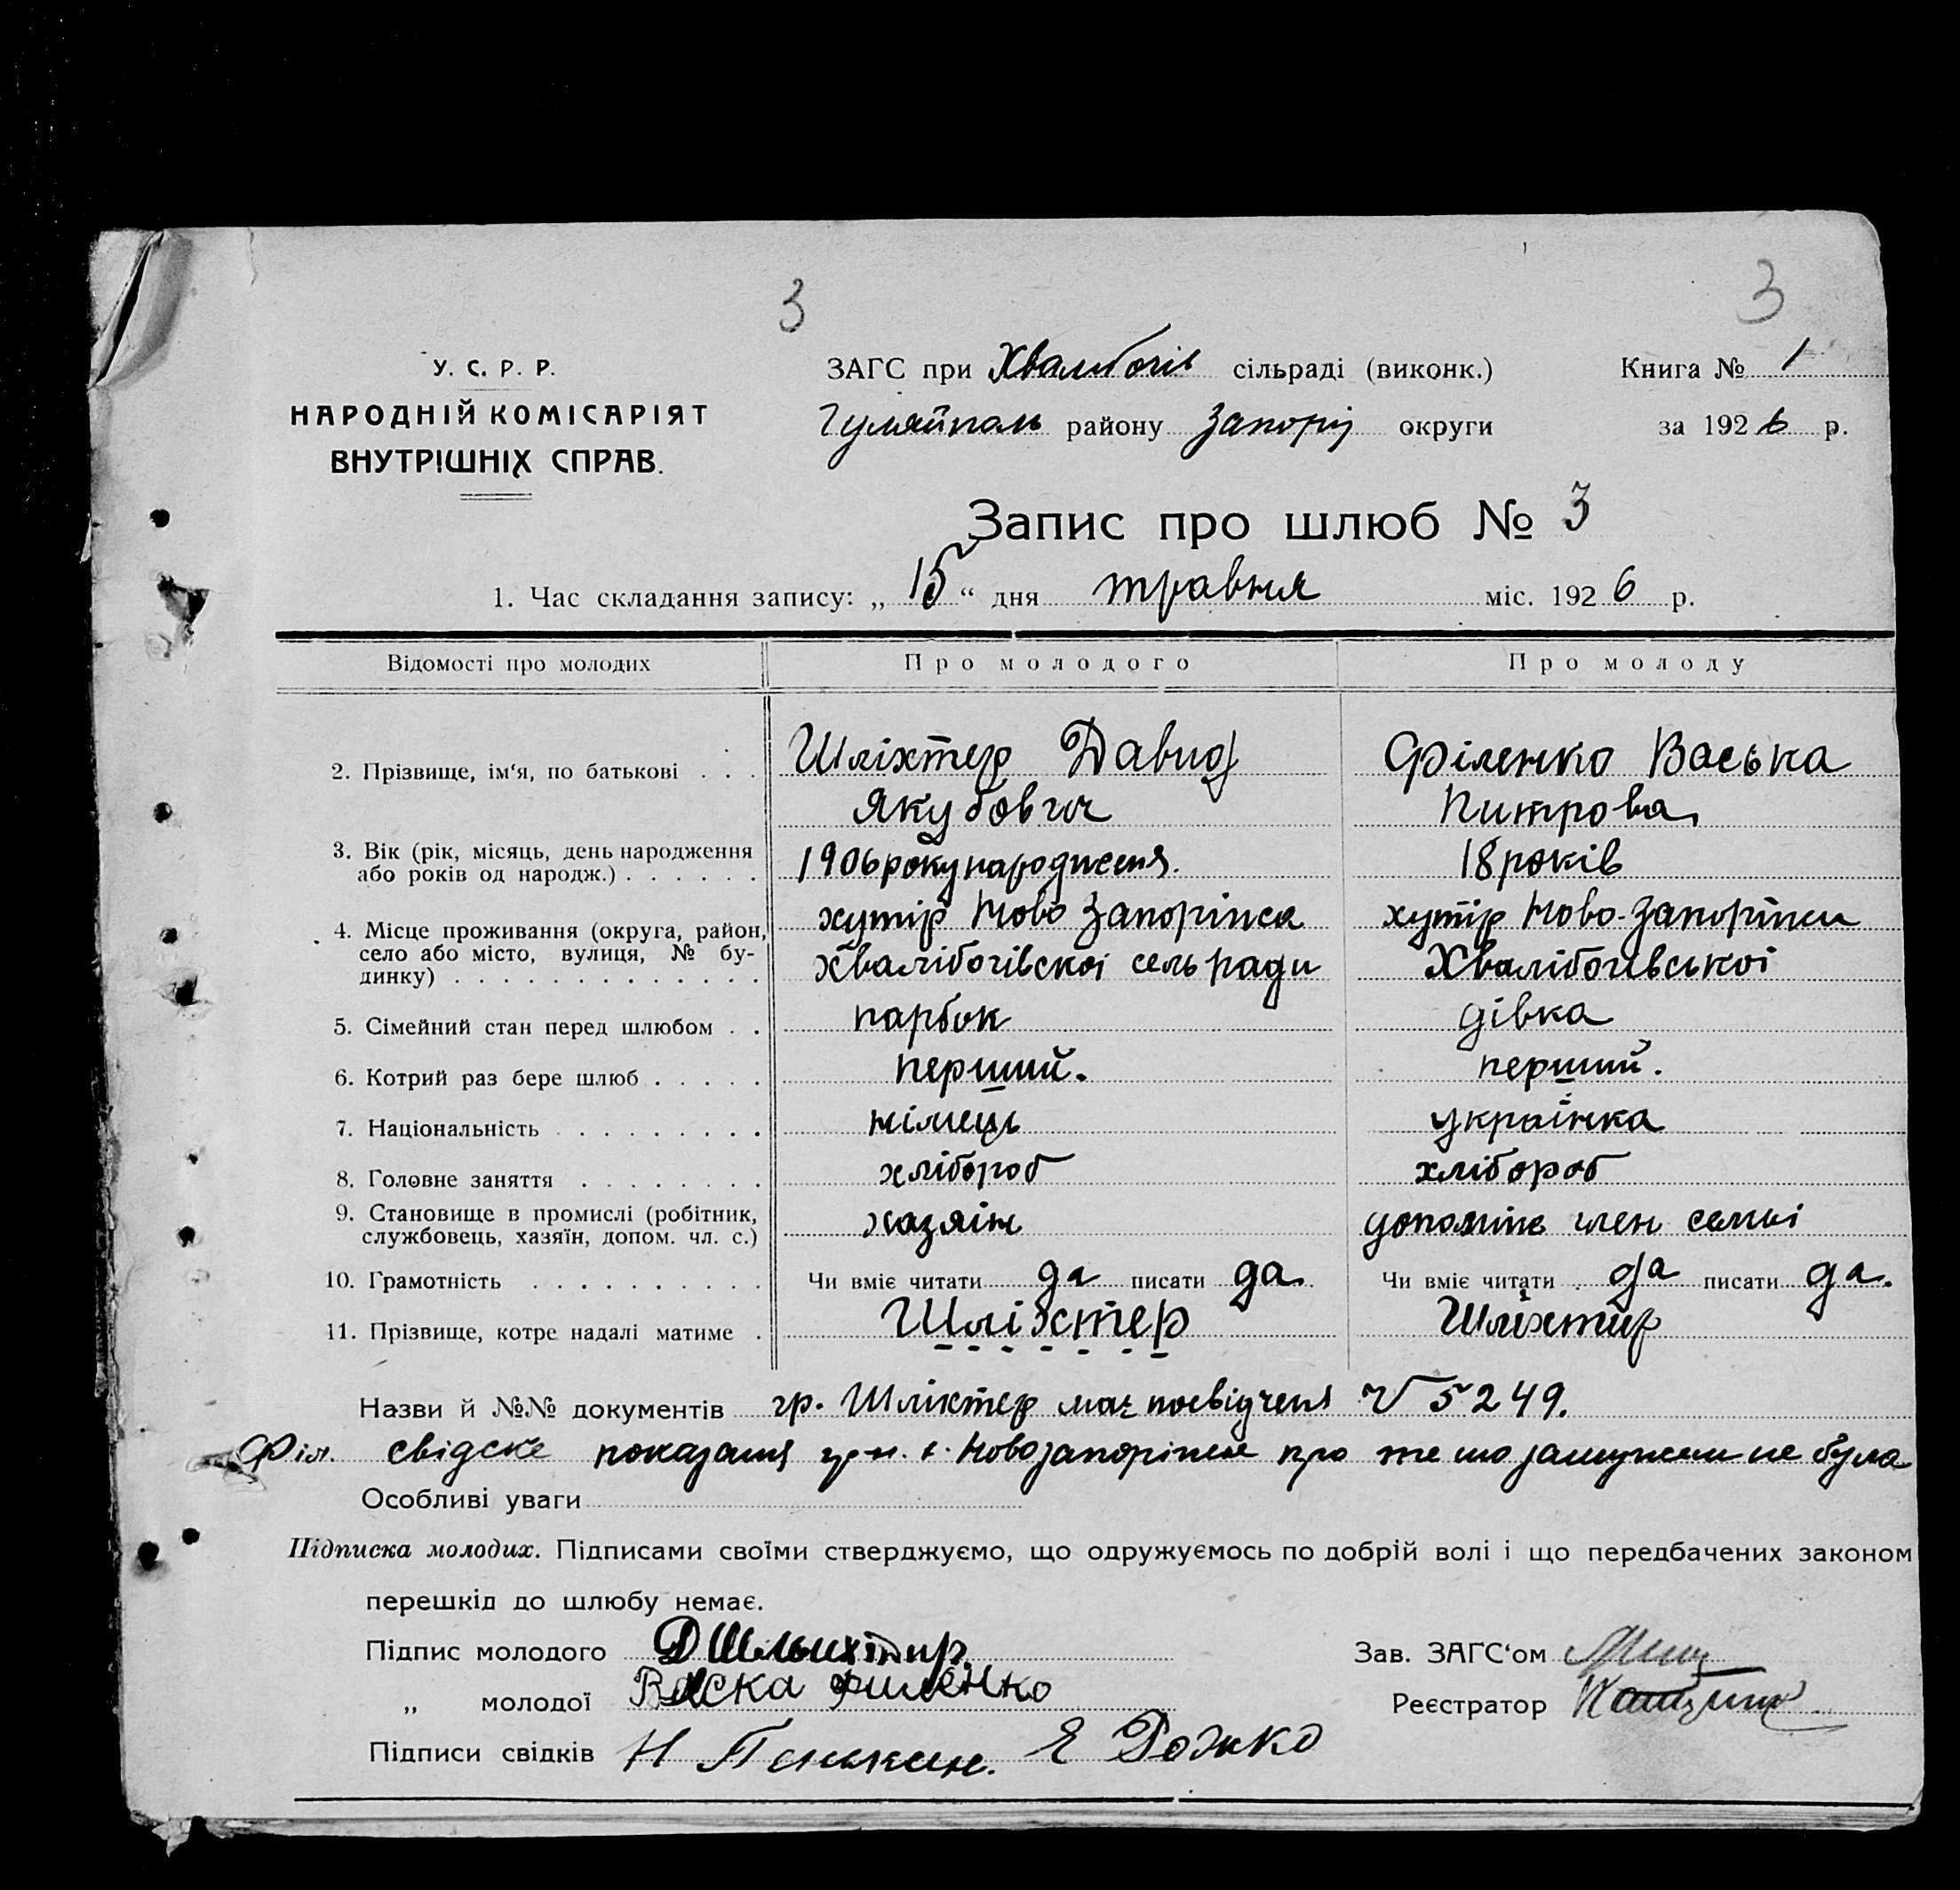 3 3
У. С. Р. Р.
НАРОДНІЙ КОМІСАРІЯТ
ВНУТРІШНІХ СПРАВ.
ЗАГС при Хвалибогів сільраді (виконк.)
Книга № 1
Гуляйполь району Запоріз округи
за 1926 р.
Запис про шлюб № 3
1. Час складання запису: „ 15 “ дня травня міс. 1926 р.
Відомості про молодих Про молодого Про молоду
2. Прізвище, ім‘я, по батькові . . . Шліхтер Давид Філенко Васька
Якубович Питрова
3. Вік (рік, місяць, день народження 1906 року народженя. 18 років
або років од народж.) . . . . . .
4. Місце проживання (округа, район, хутір Ново Запоріпса хутір Ново-Запоріпси
село або місто, вулиця, № бу- Хвалібогівскоі сельради Хвалібогівськоі
динку) . . . . . . . . . . . . .
5. Сімейний стан перед шлюбом . . парбок дівка
6. Котрий раз бере шлюб . . . . . перший. перший.
7. Національність . . . . . . . . . німець українка
8. Головне заняття . . . . . . . . хлібороб хлібороб
9. Становище в промислі (робітник, хазяін член семьі
службовець, хазяїн, допом. чл. с.)
10. Грамотність . . . . . . . . . . Чи вміє читати да писати да. Чи вміє читати да писати да.
11. Прізвище, котре надалі матиме . Шліхтер Шліхтир
Назви й №№ документів гр. Шліхтер має посвідченя № 5249.
Філ. свідске показаня гр-н. х. Новозапоріпси про те шо замужем не була
Особливі уваги
Підписка молодих. Підписами своїми стверджуємо, що одружуємось по добрій волі і що передбачених законом
перешкід до шлюбу немає.
Підпис молодого Д Шльихтир.
Зав. ЗАГС‘ом
„ молодої Васка Филенко
Реєстратор
Підписи свідків Н Е Рожко